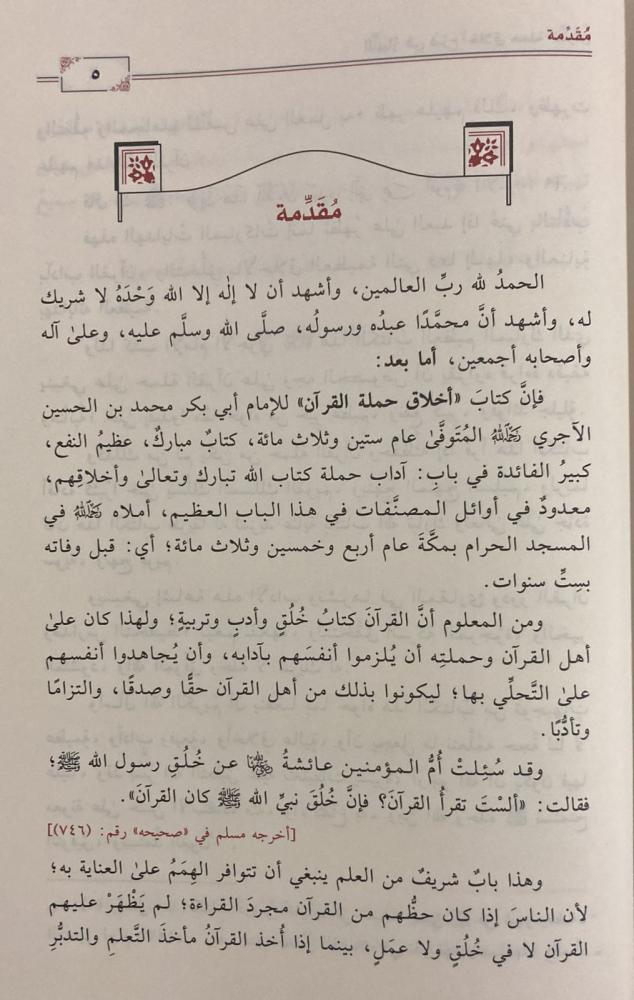 مُقَدِّمة
٥
مُقَدِّمة
الحمدُ لله ربِّ العالمين، وأشهد أن لا إلٰه إلا الله وَحْدَهُ لا شريك
له، وأشهد أنَّ محمَّدًا عبدُه ورسولُه، صلَّى الله وسلَّم عليه، وعلىٰ آله
وأصحابه أجمعين، أما بعد:
فإنَّ كتابَ «أخلاق حملة القرآن» للإمام أبي بكر محمد بن الحسين
الآجري رَحِمَهُ اللهُ المُتَوفَّىٰ عام ستين وثلاث مائة، كتابٌ مباركٌ، عظيمُ النفع،
كبيرُ الفائدة في بابِ: آداب حملة كتاب الله تبارك وتعالىٰ وأخلاقِهم،
معدودٌ في أوائل المصنَّفات في هذا الباب العظيم، أملاه رَحِمَهُ اللهُ في
المسجد الحرام بمكَّةَ عام أربع وخمسين وثلاث مائة؛ أي: قبل وفاته
بسِتِّ سنوات.
ومن المعلوم أنَّ القرآنَ كتابُ خُلُقٍ وأدبٍ وتربيةٍ؛ ولهذا كان علىٰ
أهل القرآن وحملتِه أن يُلزموا أنفسَهم بآدابه، وأن يُجاهدوا أنفسهم
علىٰ التَّحلِّي بها؛ ليكونوا بذلك من أهل القرآن حقًّا وصدقًا، والتزامًا
وتأدُّبًا.
وقد سُئِلتْ أُمُّ المؤمنين عائشةُ رَضِيَ اللهُ عَنْهَا عن خُلُقِ رسول الله ﷺ؛
فقالت: «ألسْتَ تقرأُ القرآنَ؟ فإنَّ خُلُقَ نبيِّ الله ﷺ كان القرآنَ».
[أخرجه مسلم في «صحيحه» رقم: (٧٤٦)]
وهذا بابٌ شريفٌ من العلم ينبغي أن تتوافر الهِمَمُ علىٰ العناية به؛
لأن الناسَ إذا كان حظُّهم من القرآن مجردَ القراءة؛ لم يَظْهَرْ عليهم
القرآن لا في خُلُقٍ ولا عمَلٍ، بينما إذا أُخذ القرآنُ مأخذَ التَّعلمِ والتدبُّرِ